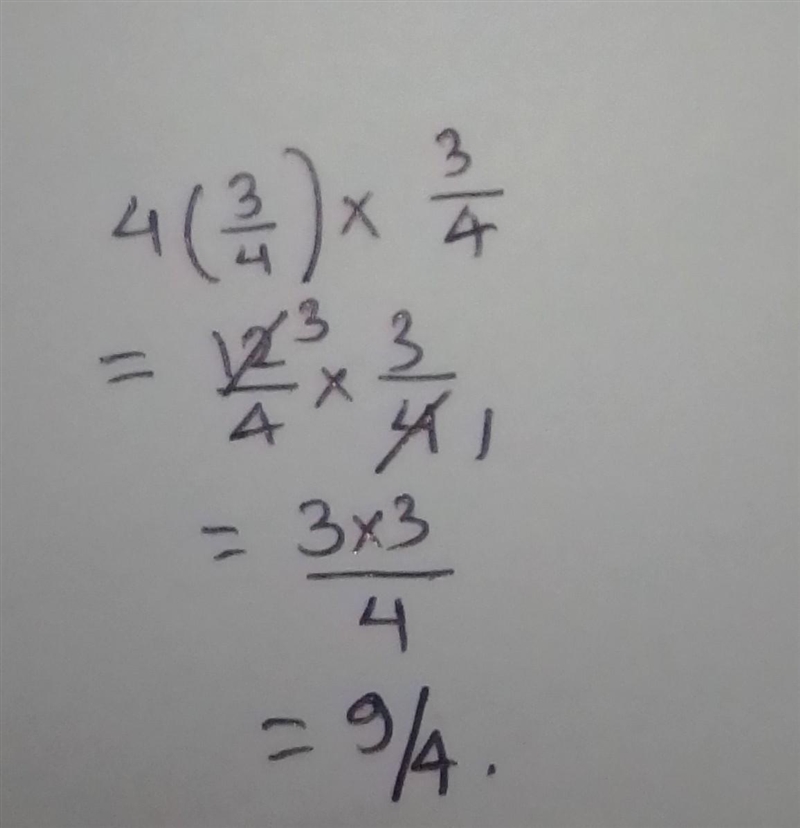 4(3/4) × 3/4
= 12/4 3 × 3/4 1
= 3×3/4
= 9/4.